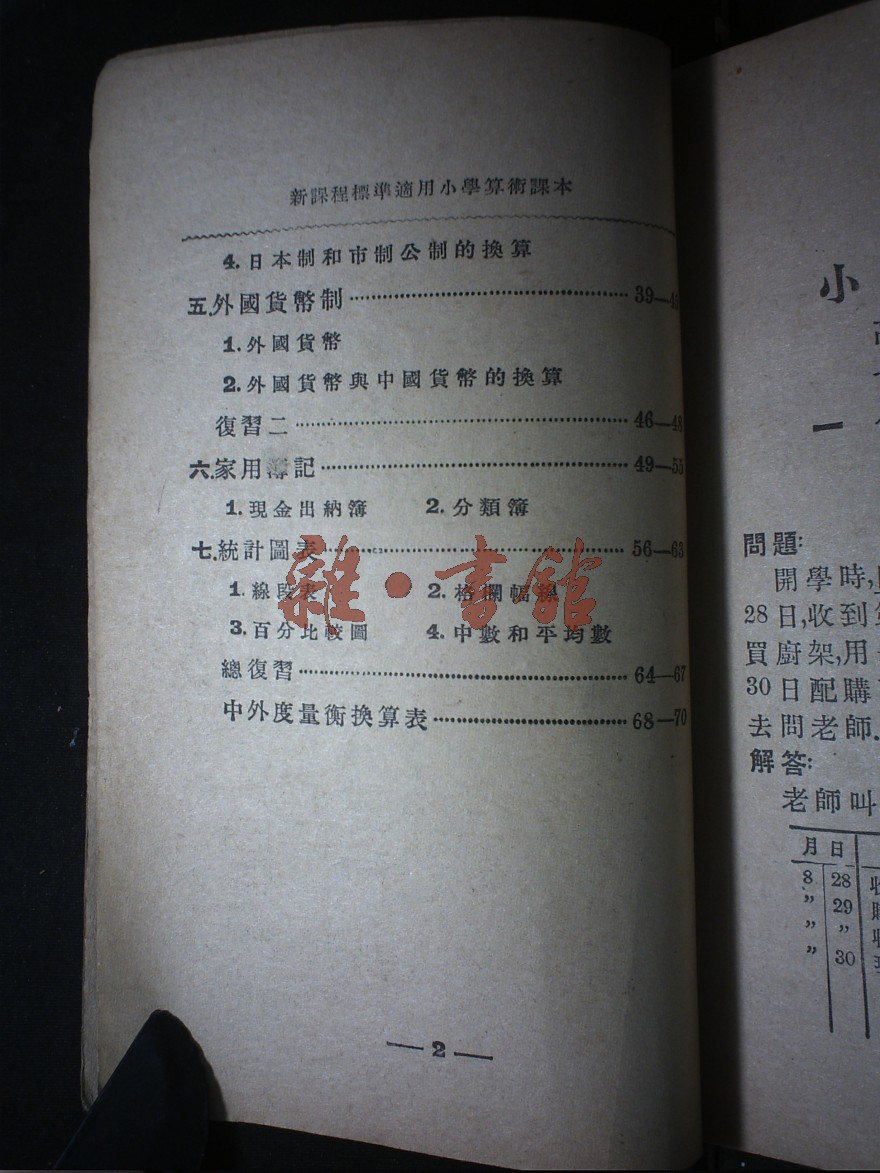 新課程標準適用小學算術課本
4.日本制和市制公制的換算
五.外國貨幣制 39—4
1.外國貨幣
2.外國貨幣與中國貨幣的換算
復習二 46—48
六.家用簿記 49—55
1.現金出納簿 2.分類簿
七.統計圖表 56—63
1.線段表 2.格欄幅線
3.百分比較圖 4.中數和平均數
總復習 64—67
中外度量衡換算表 68—70
— 2 —
雜·書館
小
一
問題:
開學時,
28日,收到
買廚架,用
30日配購
去問老師.
解答:
老師叫
月 日
8 28
〃 29
〃 〃
〃 30